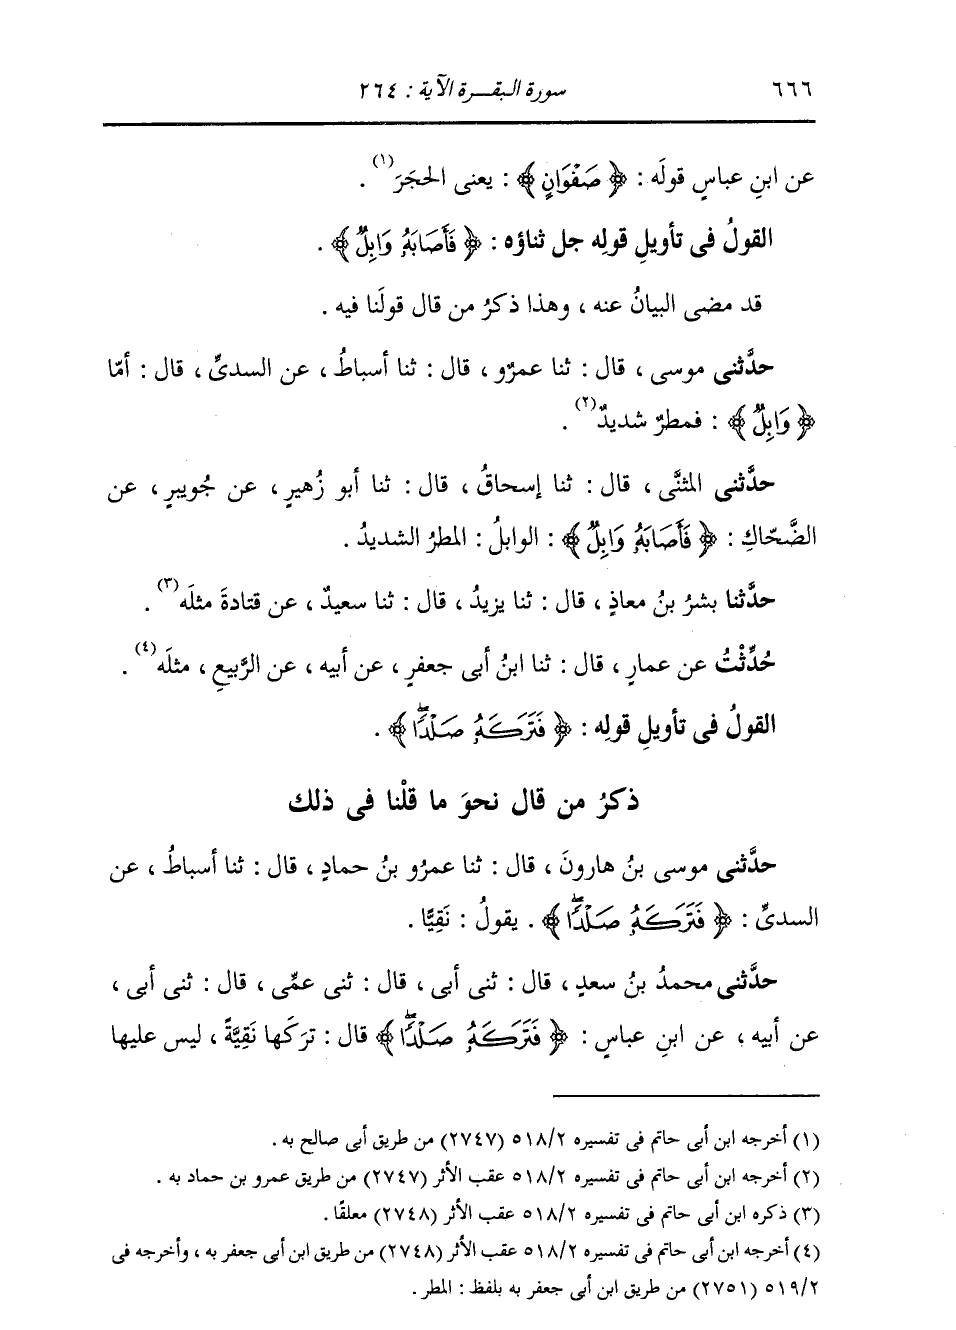 ٦٦٦ سورة البقرة الآية : ٢٦٤
عن ابنِ عباسٍ قولَه : ﴿ صَفْوَانٍ ﴾ : يعنى الحجَرَ(١) .
القولُ فى تأويلِ قولِه جل ثناؤه : ﴿ فَأَصَابَهُۥ وَابِلٌ ﴾ .
قد مضى البيانُ عنه ، وهذا ذكرُ من قال قولَنا فيه .
حدَّثنى موسى ، قال : ثنا عمرٌو ، قال : ثنا أسباطُ ، عن السدىِّ ، قال : أمّا
﴿ وَابِلٌ ﴾ : فمطرٌ شديدٌ(٢) .
حدَّثنى المثنَّى ، قال : ثنا إسحاقُ ، قال : ثنا أبو زُهيرٍ ، عن جُويبرٍ ، عن
الضَّحّاكِ : ﴿ فَأَصَابَهُۥ وَابِلٌ ﴾ : الوابلُ : المطرُ الشديدُ .
حدَّثنا بشرُ بنُ معاذٍ ، قال : ثنا يزيدُ ، قال : ثنا سعيدٌ ، عن قتادةَ مثلَه(٣) .
حُدِّثْتُ عن عمارٍ ، قال : ثنا ابنُ أبى جعفرٍ ، عن أبيه ، عن الرَّبيعِ ، مثلَه(٤) .
القولُ فى تأويلِ قولِه : ﴿ فَتَرَكَهُۥ صَلْدًاۖ ﴾ .
ذكرُ من قال نحوَ ما قلْنا فى ذلك
حدَّثنى موسى بنُ هارونَ ، قال : ثنا عمرُو بنُ حمادٍ ، قال : ثنا أسباطُ ، عن
السدىِّ : ﴿ فَتَرَكَهُۥ صَلْدًاۖ ﴾ . يقولُ : نَقِيًّا .
حدَّثنى محمدُ بنُ سعدٍ ، قال : ثنى أبى ، قال : ثنى عمِّى ، قال : ثنى أبى ،
عن أبيه ، عن ابنِ عباسٍ : ﴿ فَتَرَكَهُۥ صَلْدًاۖ ﴾ قال : ترَكها نَقِيَّةً ، ليس عليها
(١) أخرجه ابن أبى حاتم فى تفسيره ٥١٨/٢ (٢٧٤٧) من طريق أبى صالح به .
(٢) أخرجه ابن أبى حاتم فى تفسيره ٥١٨/٢ عقب الأثر (٢٧٤٧) من طريق عمرو بن حماد به .
(٣) ذكره ابن أبى حاتم فى تفسيره ٥١٨/٢ عقب الأثر (٢٧٤٨) معلقًا .
(٤) أخرجه ابن أبى حاتم فى تفسيره ٥١٨/٢ عقب الأثر (٢٧٤٨) من طريق ابن أبى جعفر به ، وأخرجه فى
٥١٩/٢ (٢٧٥١) من طريق ابن أبى جعفر به بلفظ : المطر .